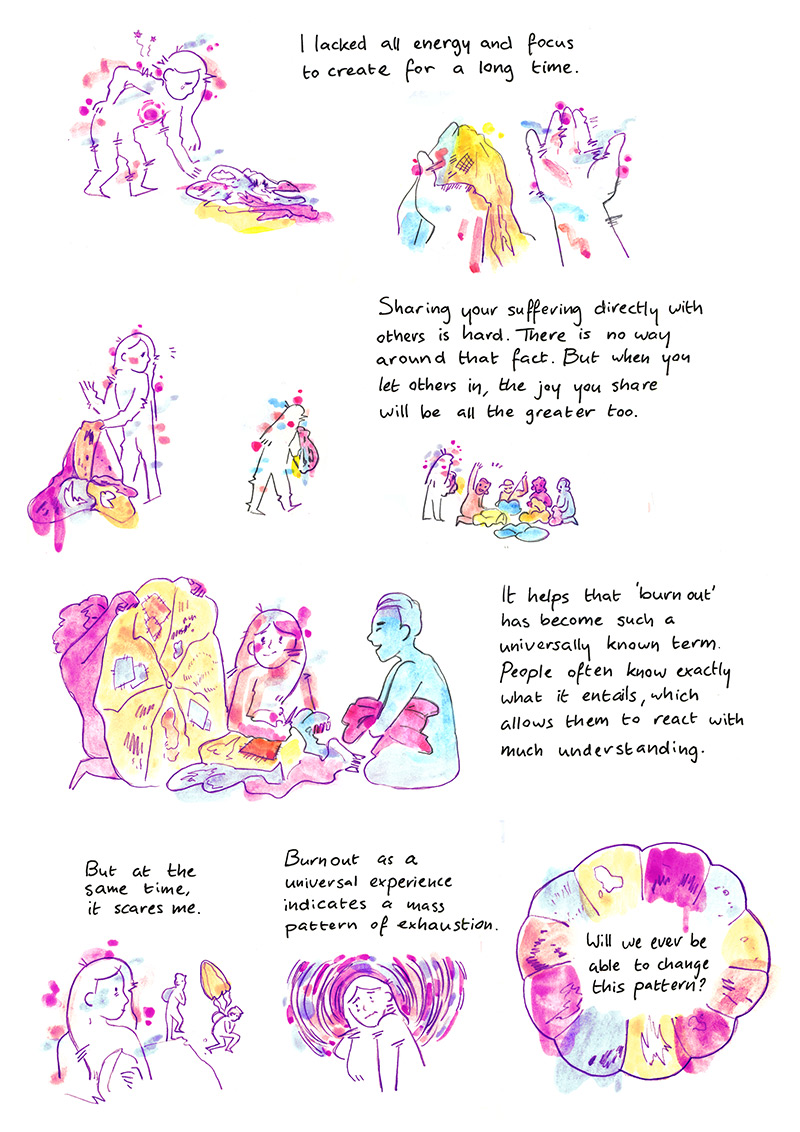 I lacked all energy and focus
to create for a long time.
Sharing your suffering directly with
others is hard. There is no way
around that fact. But when you
let others in, the joy you share
will be all the greater too.
It helps that 'burn out'
has become such a
universally known term.
People often know exactly
what it entails, which
allows them to react with
much understanding.
But at the
same time,
it scares me.
Burnout as a
universal experience
indicates a mass
pattern of exhaustion.
Will we ever be
able to change
this pattern?